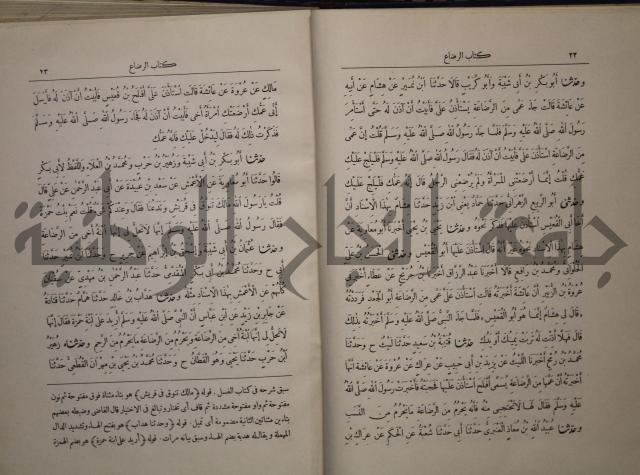 ٢٢ كتاب الرضاع
و حدثنا أبو بكر بن أبي شيبة وأبو كريب قالا حدثنا ابن نمير عن هشام عن أبيه
عن عائشة قالت جاء عمى من الرضاعة يستأذن على فأبيت أن آذن له حتى أستأمر
رسول الله صلى الله عليه وسلم فلما جاء رسول الله صلى الله عليه وسلم قلت إن عمى
من الرضاعة استأذن على فأبيت أن آذن له فقال رسول الله صلى الله عليه وسلم فليلج عليك
عمك قلت إنما أرضعتنى المرأة ولم يرضعنى الرجل قال إنه عمك فليلج عليك
و حدثنى أبو الربيع الزهراني حدثنا حماد يعنى ابن زيد حدثنا هشام بهذا الاسناد أن
أخا أبى القعيس استأذن عليها فذكر نحوه و حدثنا يحي بن يحي أخبرنا أبو معاوية عن
هشام بهذا الاسناد نحوه غير أنه قال استأذن عليها أبو القعيس و حدثنى الحسن بن على
الحلواني ومحمد بن رافع قالا أخبرنا عبد الرزاق أخبرنا ابن جريج عن عطاء أخبرني
عروة بن الزبير أن عائشة أخبرته قالت استأذن على عمى من الرضاعة أبو الجعد فرددته
قال لى هشام إنما هو أبو القعيس فلما جاء النبي صلى الله عليه وسلم أخبرته بذلك
قال فهلا أذنت له تربت يمينك أو يدك حدثنا قتيبة بن سعيد حدثنا ليث ح وحدثنا
محمد بن رمح أخبرنا الليث عن يزيد بن أبي حبيب عن عراك عن عروة عن عائشة أنها
أخبرته أن عمها من الرضاعة يسمى أفلح استأذن عليها فحجبته فأخبرت رسول الله صلى الله
عليه وسلم فقال لها لاتحتجبى منه فأنه يحرم من الرضاعة مايحرم من النسب
و حدثنا عبيد الله بن معاذ العنبري حدثنا أبي حدثنا شعبة عن الحكم عن عراك بن
كتاب الرضاع ٢٣
مالك عن عروة عن عائشة قالت استأذن على أفلح بن قعيس فأبيت أن آذن له فأرسل
إنى عمك أرضعتك امرأة أخى فأبيت أن آذن له فجاء رسول الله صلى الله عليه وسلم
فذكرت ذلك له فقال ليدخل عليك فانه عمك
حدثنا أبو بكر بن أبي شيبة وزهير بن حرب ومحمد بن العلاء واللفظ لأبي بكر
قالوا حدثنا أبو معاوية عن الأعمش عن سعد بن عبيدة عن أبي عبد الرحمن عن على قال
قلت يارسول الله مالك تنوق في قريش وتدعنا فقال وعندكم شىء قلت نعم بنت حمزة
فقال رسول الله صلى الله عليه وسلم إنها لاتحل لى إنها ابنة أخى من الرضاعة
و حدثنا عثمان بن أبي شيبة وإسحق بن إبراهيم عن جرير ح وحدثنا ابن نمير حدثنا
أبي ح وحدثنا محمد بن أبي بكر المقدمي حدثنا عبد الرحمن بن مهدى عن سفيان
كلهم عن الأعمش بهذا الاسناد مثله و حدثنا هداب بن خالد حدثنا همام حدثنا قتادة
عن جابر بن زيد عن ابن عباس أن النبي صلى الله عليه وسلم أريد على ابنة حمزة فقال إنها
لاتحل لى إنها ابنة أخى من الرضاعة ويحرم من الرضاعة مايحرم من الرحم و حدثناه زهير
ابن حرب حدثنا يحي وهو القطان ح وحدثنا محمد بن يحي بن مهران القطعى حدثنا
سبق شرحه في كتاب الغسل. قوله ﴿مالك تنوق في قريش﴾ هو بتاء مثناة فوق مفتوحة ثم نون
مفتوحة ثم واو مفتوحة مشددة ثم قاف أى تختار وتبالغ في الاختيار قال القاضى وضبطه بعضهم
بتاءين مثناتين الثانية مضمومة أى تميل. قوله ﴿وحدثنا هداب﴾ هو بفتح الهاء وتشديد الدال
المهملة ويقال له هدبة بضم الهاء وسبق بيانه مرات. قوله ﴿أريد على ابنة حمزة﴾ هو بضم الهمزة
جامعة النجاح الوطنية